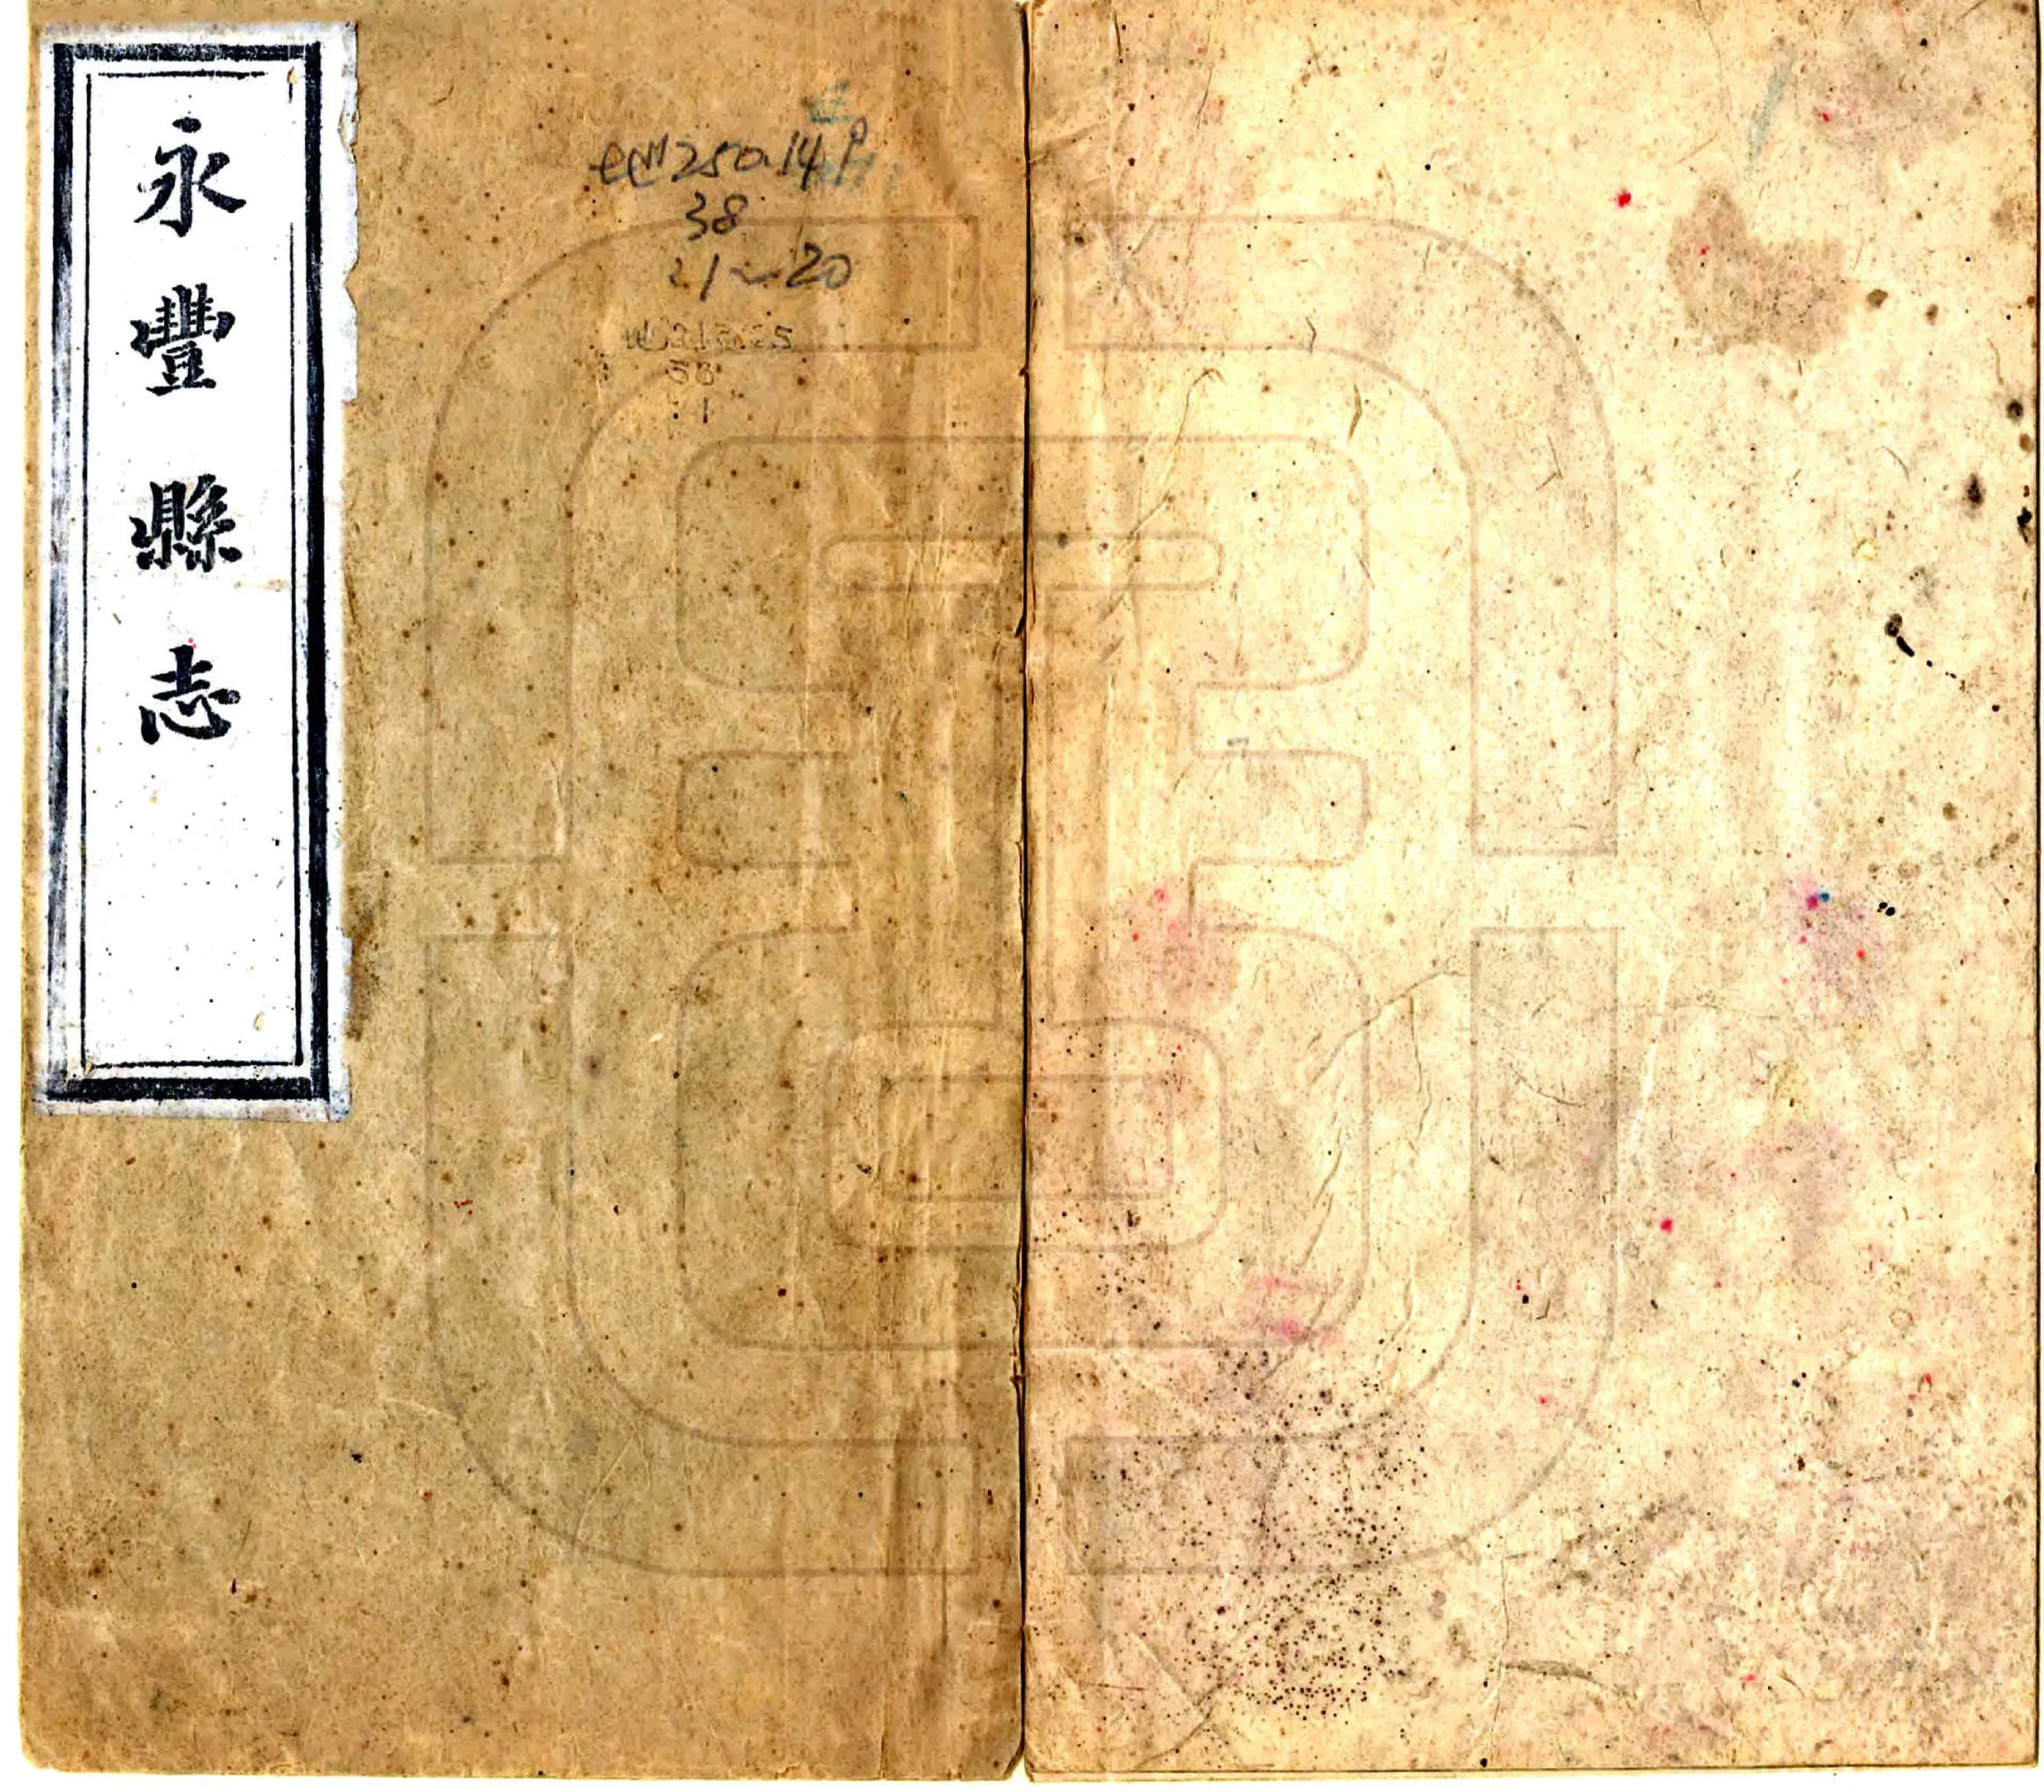 永豐縣志
地250.14
38
:1~20
地213.25
38
:1